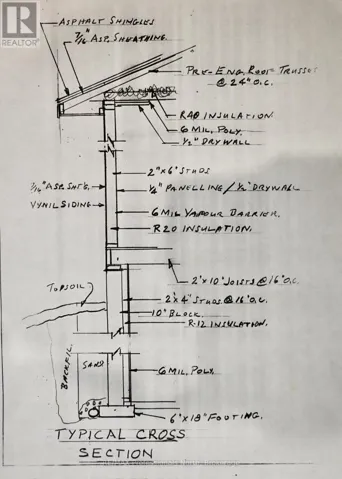 R
REALTOR®
ASPHALT SHINGLES
7/16" ASP. SHEATHING.
PRE-ENG. ROOF TRUSSES
@ 24" O.C.
R40 INSULATION
6 MIL. POLY.
1/2" DRYWALL
2"x6" STUDS
7/16" ASP. SHTG.
1/4" PANELLING / 1/2" DRYWALL
VYNIL SIDING
6 MIL VAPOUR BARRIER.
R20 INSULATION.
2"x10" JOISTS @ 16" O.C.
TOPSOIL
2"x4" STUDS @ 16" O.C.
10" BLOCK.
R-12 INSULATION.
BACKFILL
SAND
6 MIL. POLY.
6"x18" FOOTING.
TYPICAL CROSS
SECTION